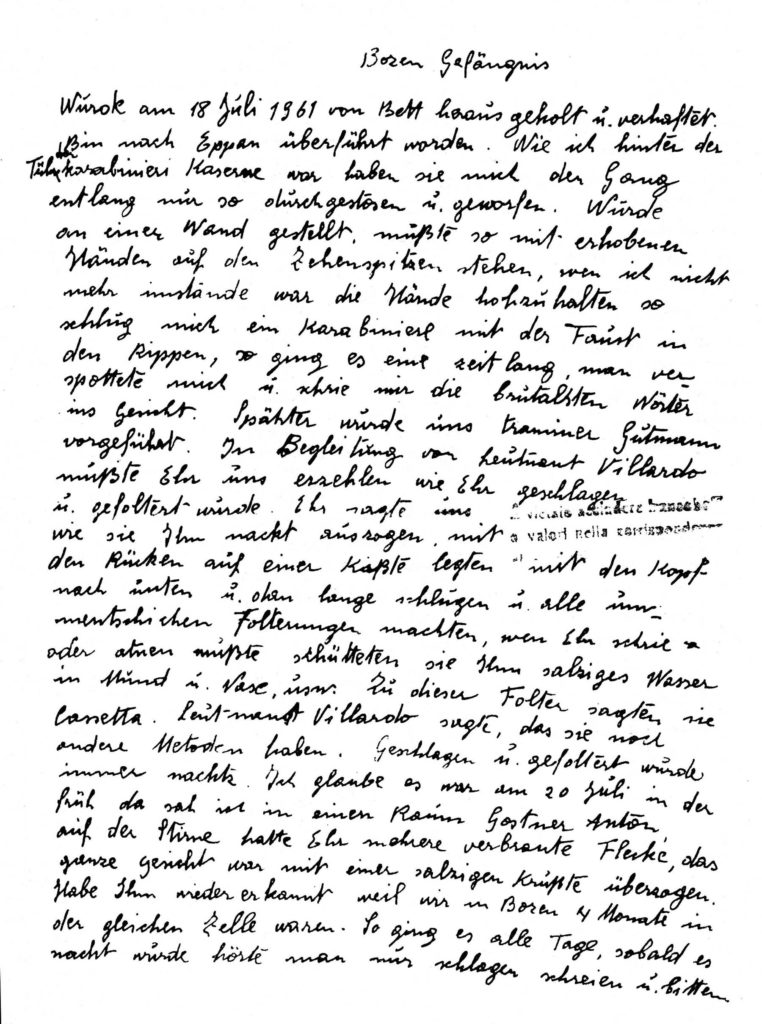 Bozen Gefängnis
Wurde am 18 Juli 1961 von Bett heraus geholt u. verhaftet.
Bin nach Eppan überführt worden. Wie ich hinter der
Tühr der karabinieri Kaserne war haben sie mich den Gang
entlang nur so durchgestosen u. geworfen. Wurde
an einer Wand gestellt, mußte so mit erhobenen
Händen auf den Zehenspitzen stehen, wen ich nicht
mehr imstande war die Hände hohzuhalten so
schlug mich ein Karabiniere mit der Faust in
den Rippen, so ging es eine zeitlang, man ver-
spottete mich u. schrie mir die brutalsten Wörter
ins Gesicht. Spähter wurde uns traminer Gutmann
vorgeführt. In Begleitung von Leutnant Villardo
mußte Ehr uns erzehlen wie Ehr geschlagen
u. gefoltert wurde. Ehr sagte uns
wie sie Ihn nackt auszogen, mit
è vietato accludere
valori nella corrispondenza
den Rücken auf einer Kaßte legten mit den Kopf
nach unten u. dan lange schlugen u. alle un-
mentschichen Folterungen machten, wen Ehr schrie
oder atmen mußte schütteten sie Ihm salziges Wasser
in Mund u. Nase, usw. Zu dieser Folter sagten sie
Cassetta. Leutnant Villardo sagte, das sie noch
andere Metoden haben. Geschlagen u. gefoltert wurde
immer nachts. Ich glaube es war am 20 Juli in der
früh da sah ich in einen Raum Gostner Anton
auf der Stirne hatte Ehr mehrere verbrante Flecke, das
ganze gesicht war mit einer salzigen Krußte überzogen.
Habe Ihm wieder erkannt weil wir in Bozen 4 Monate in
der gleichen Zelle waren. So ging es alle Tage, sobald es
nacht wurde hörte man nur schlagen schreien u. bitten